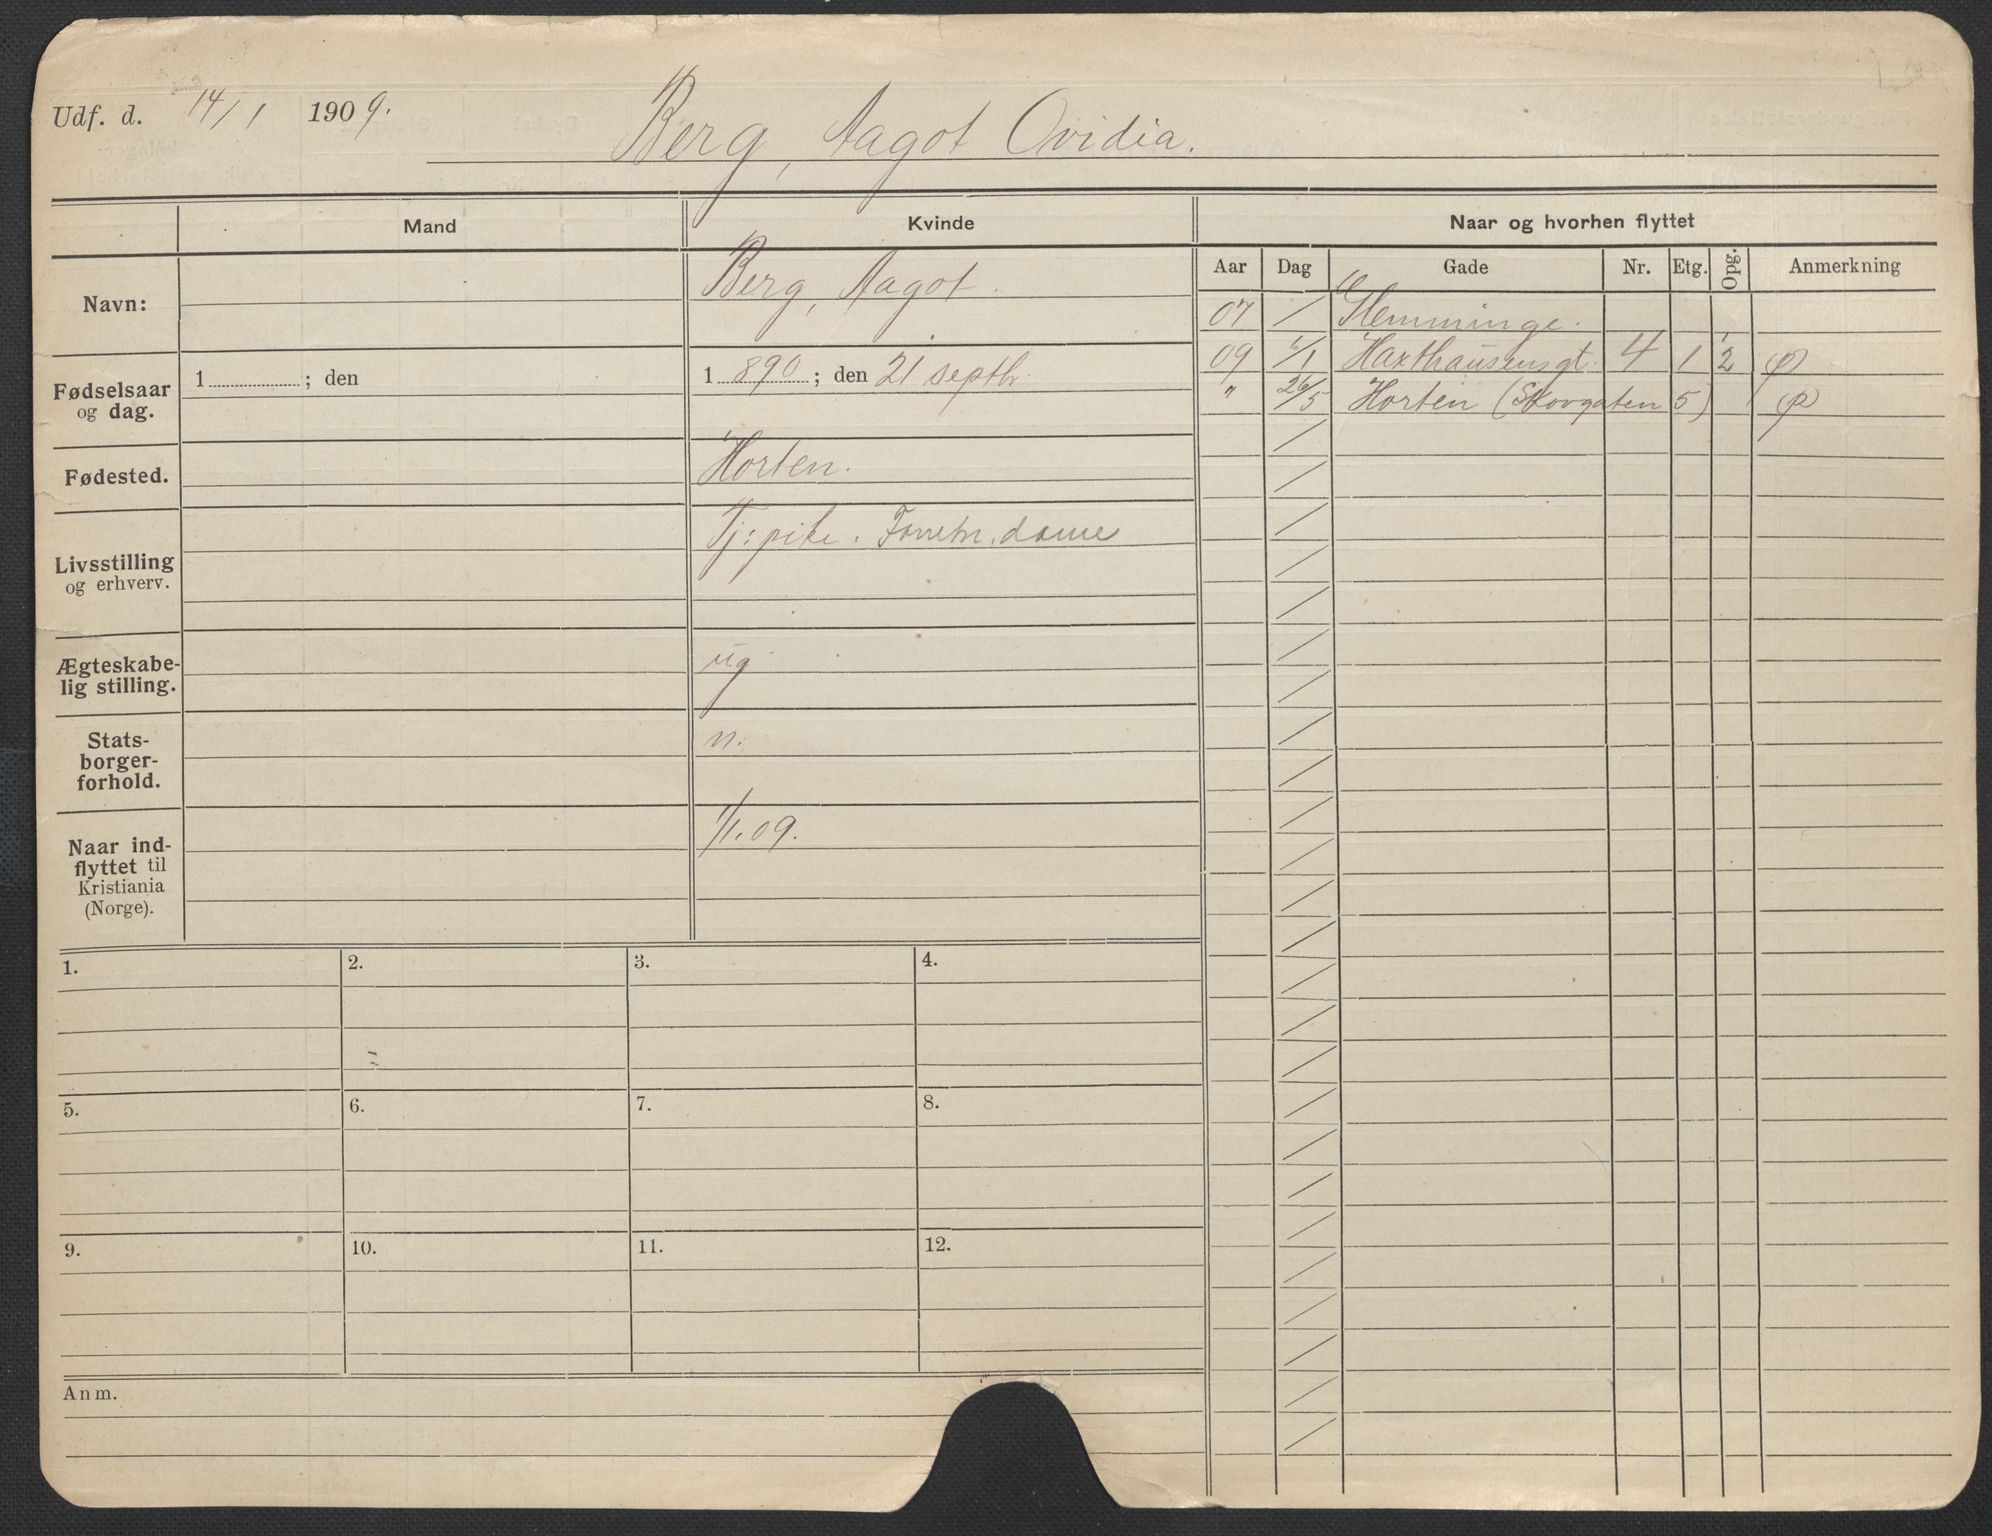 Udf. d. 14/1 1909.
Berg, Aagot Ovidia.
Mand
Kvinde
Naar og hvorhen flyttet
Aar Dag Gade Nr. Etg. Opg. Anmerkning
Navn:
Berg, Aagot.
Fødselsaar
og dag.
1 ; den
1 890 ; den 21 septbr.
Fødested.
Horten.
Livsstilling
og erhverv.
Tj: pike. Forretn. dame
Ægteskabe-
lig stilling.
ug
Stats-
borger-
forhold.
n.
Naar ind-
flyttet til
Kristiania
(Norge).
1/1.09.
07 / Glemminge.
09 /1 Haxthausensgt. 4 1 2
" 26/5 Horten (Skovgaten 5)
1. 2. 3. 4.
5. 6. 7. 8.
9. 10. 11. 12.
Anm.